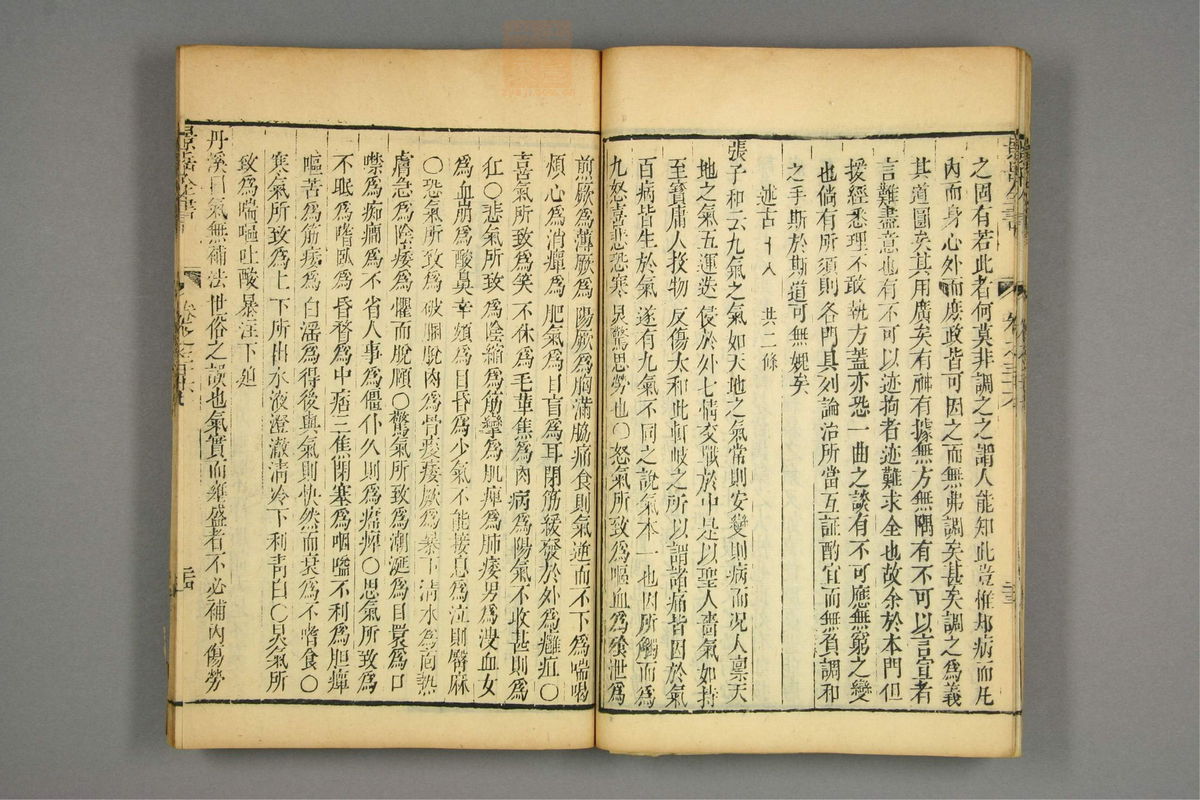 之固有若此者何莫非調之之謂人能知此豈惟却病而凡
內而身心外而庶政皆可因之而無弗調矣甚矣調之爲義
其道圓矣其用廣矣有神有據無方無隅有不可以言宣者
言難盡意也有不可以迹拘者迹難求全也故余於本門但
援經悉理不敢執方蓋亦恐一曲之談有不可應無窮之變
也倘有所須則各門具列論治所當互証酌宜而無負調和
之手斯於斯道可無媿矣
述古 共二條
張子和云九氣之氣如天地之氣常則安變則病而況人禀天
地之氣五運迭侵於外七情交戰於中是以聖人嗇氣如持
至寶庸人役物反傷太和此軒岐之所以謂諸痛皆因於氣
百病皆生於氣遂有九氣不同之說氣本一也因所觸而爲
九怒喜悲恐寒炅驚思勞也〇怒氣所致爲嘔血爲飧泄爲
煎厥爲薄厥爲陽厥爲胸滿脇痛食則氣逆而不下爲喘喝
煩心爲消癉爲肥氣爲目盲爲耳閉筋緩發於外爲癰疽〇
喜氣所致爲笑不休爲毛革焦爲肉病爲陽氣不收甚則爲
狂〇悲氣所致爲陰縮爲筋攣爲肌痺爲肺痿男爲溲血女
爲血崩爲酸鼻辛頞爲目昏爲少氣不能接息爲泣則臂麻
〇恐氣所致爲破䐃脫肉爲骨痠痿厥爲暴下淸水爲面熱
膚急爲陰痿爲懼而脫頥〇驚氣所致爲潮涎爲目睘爲口
噤爲痴癎爲不省人事爲僵仆久則爲㿏痺〇思氣所致爲
不眠爲嗜臥爲昏瞀爲中痞三焦閉塞爲咽嗌不利爲胆癉
嘔苦爲筋痿爲白淫爲得後與氣則快然而衰爲不嗜食〇
寒氣所致爲上下所出水液澄澈淸冷下利靑白〇炅氣所
致爲喘嘔吐酸暴注下迫
丹溪曰氣無補法世俗之誤也氣實而壅盛者不必補內傷勞